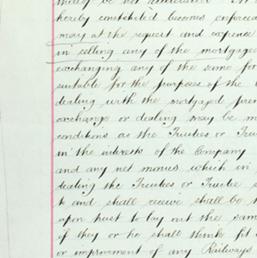 thereby be not
hereby constituted becomes enforcea
may at the request and expense
in selling any of the mortgage
exchanging any of the same for
suitable for the purposes of the
dealing with the mortgaged prem
exchange or dealing may be m
conditions as the Trustees or Trus
in the interests of the Company
and any net monies which in
dealing the Trustees or Trustee s
to and shall receive shall be
upon trust to lay out the same
if they or he shall think fit
or improvement of any Railways